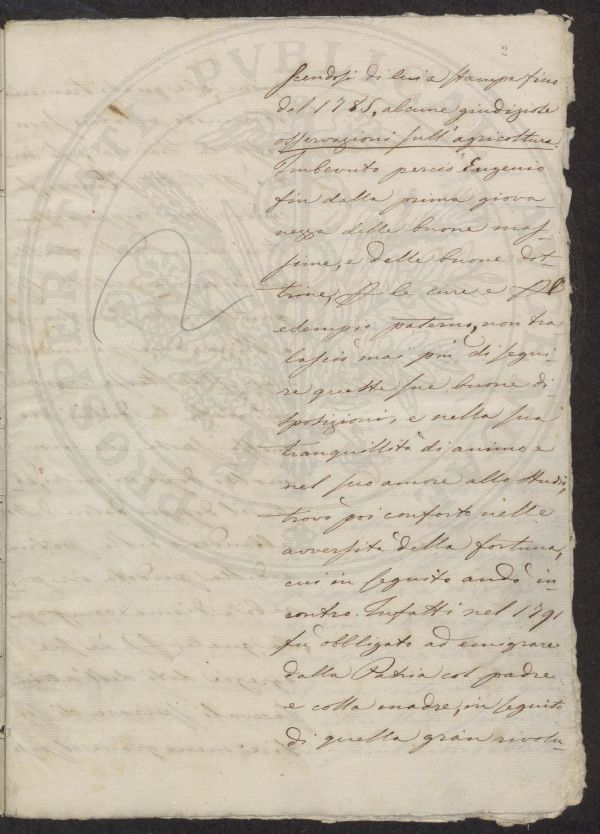 2
scendosi di lui a stampa fino
dal 1785, alcune giudiziose
osservazioni sull'agricoltura.
Imbevuto perciò Eugenio
fin dalla prima giova
nezza delle buone mas-
sime, e delle buone dot
trine, p le cure e p l'
esempio paterno, non tra
lasciò mai più di segui
re queste sue buone di
sposizioni, e nella sua
tranquillità di animo e
nel suo amore allo studio,
trovò poi conforto nelle
avversità della fortuna,
cui in seguito andò in
contro. Infatti nel 1791
fù obbligato ad emigrare
dalla Patria col padre
e colla madre, in seguito
di quella gran rivolu-
PROSPERITATI PVBLICAE AVGENDAE